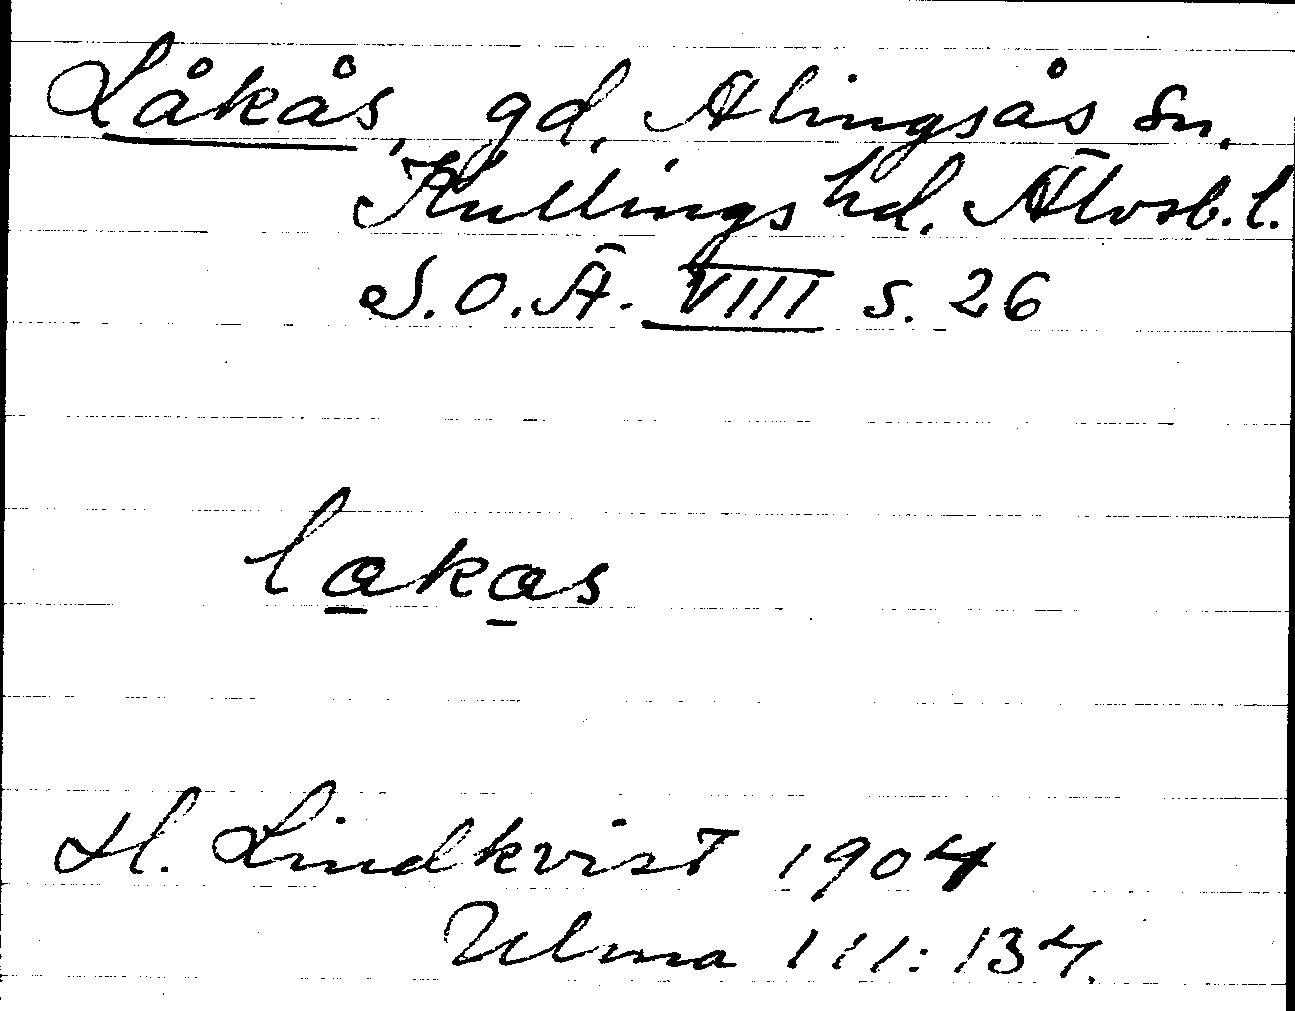 Låkås, gd, Alingsås sn.
Kullings hd. Älvsb. l.
S. O. Ä. VIII s. 26
lakas
H. Lindkvist 1904
Ulma 111:134.